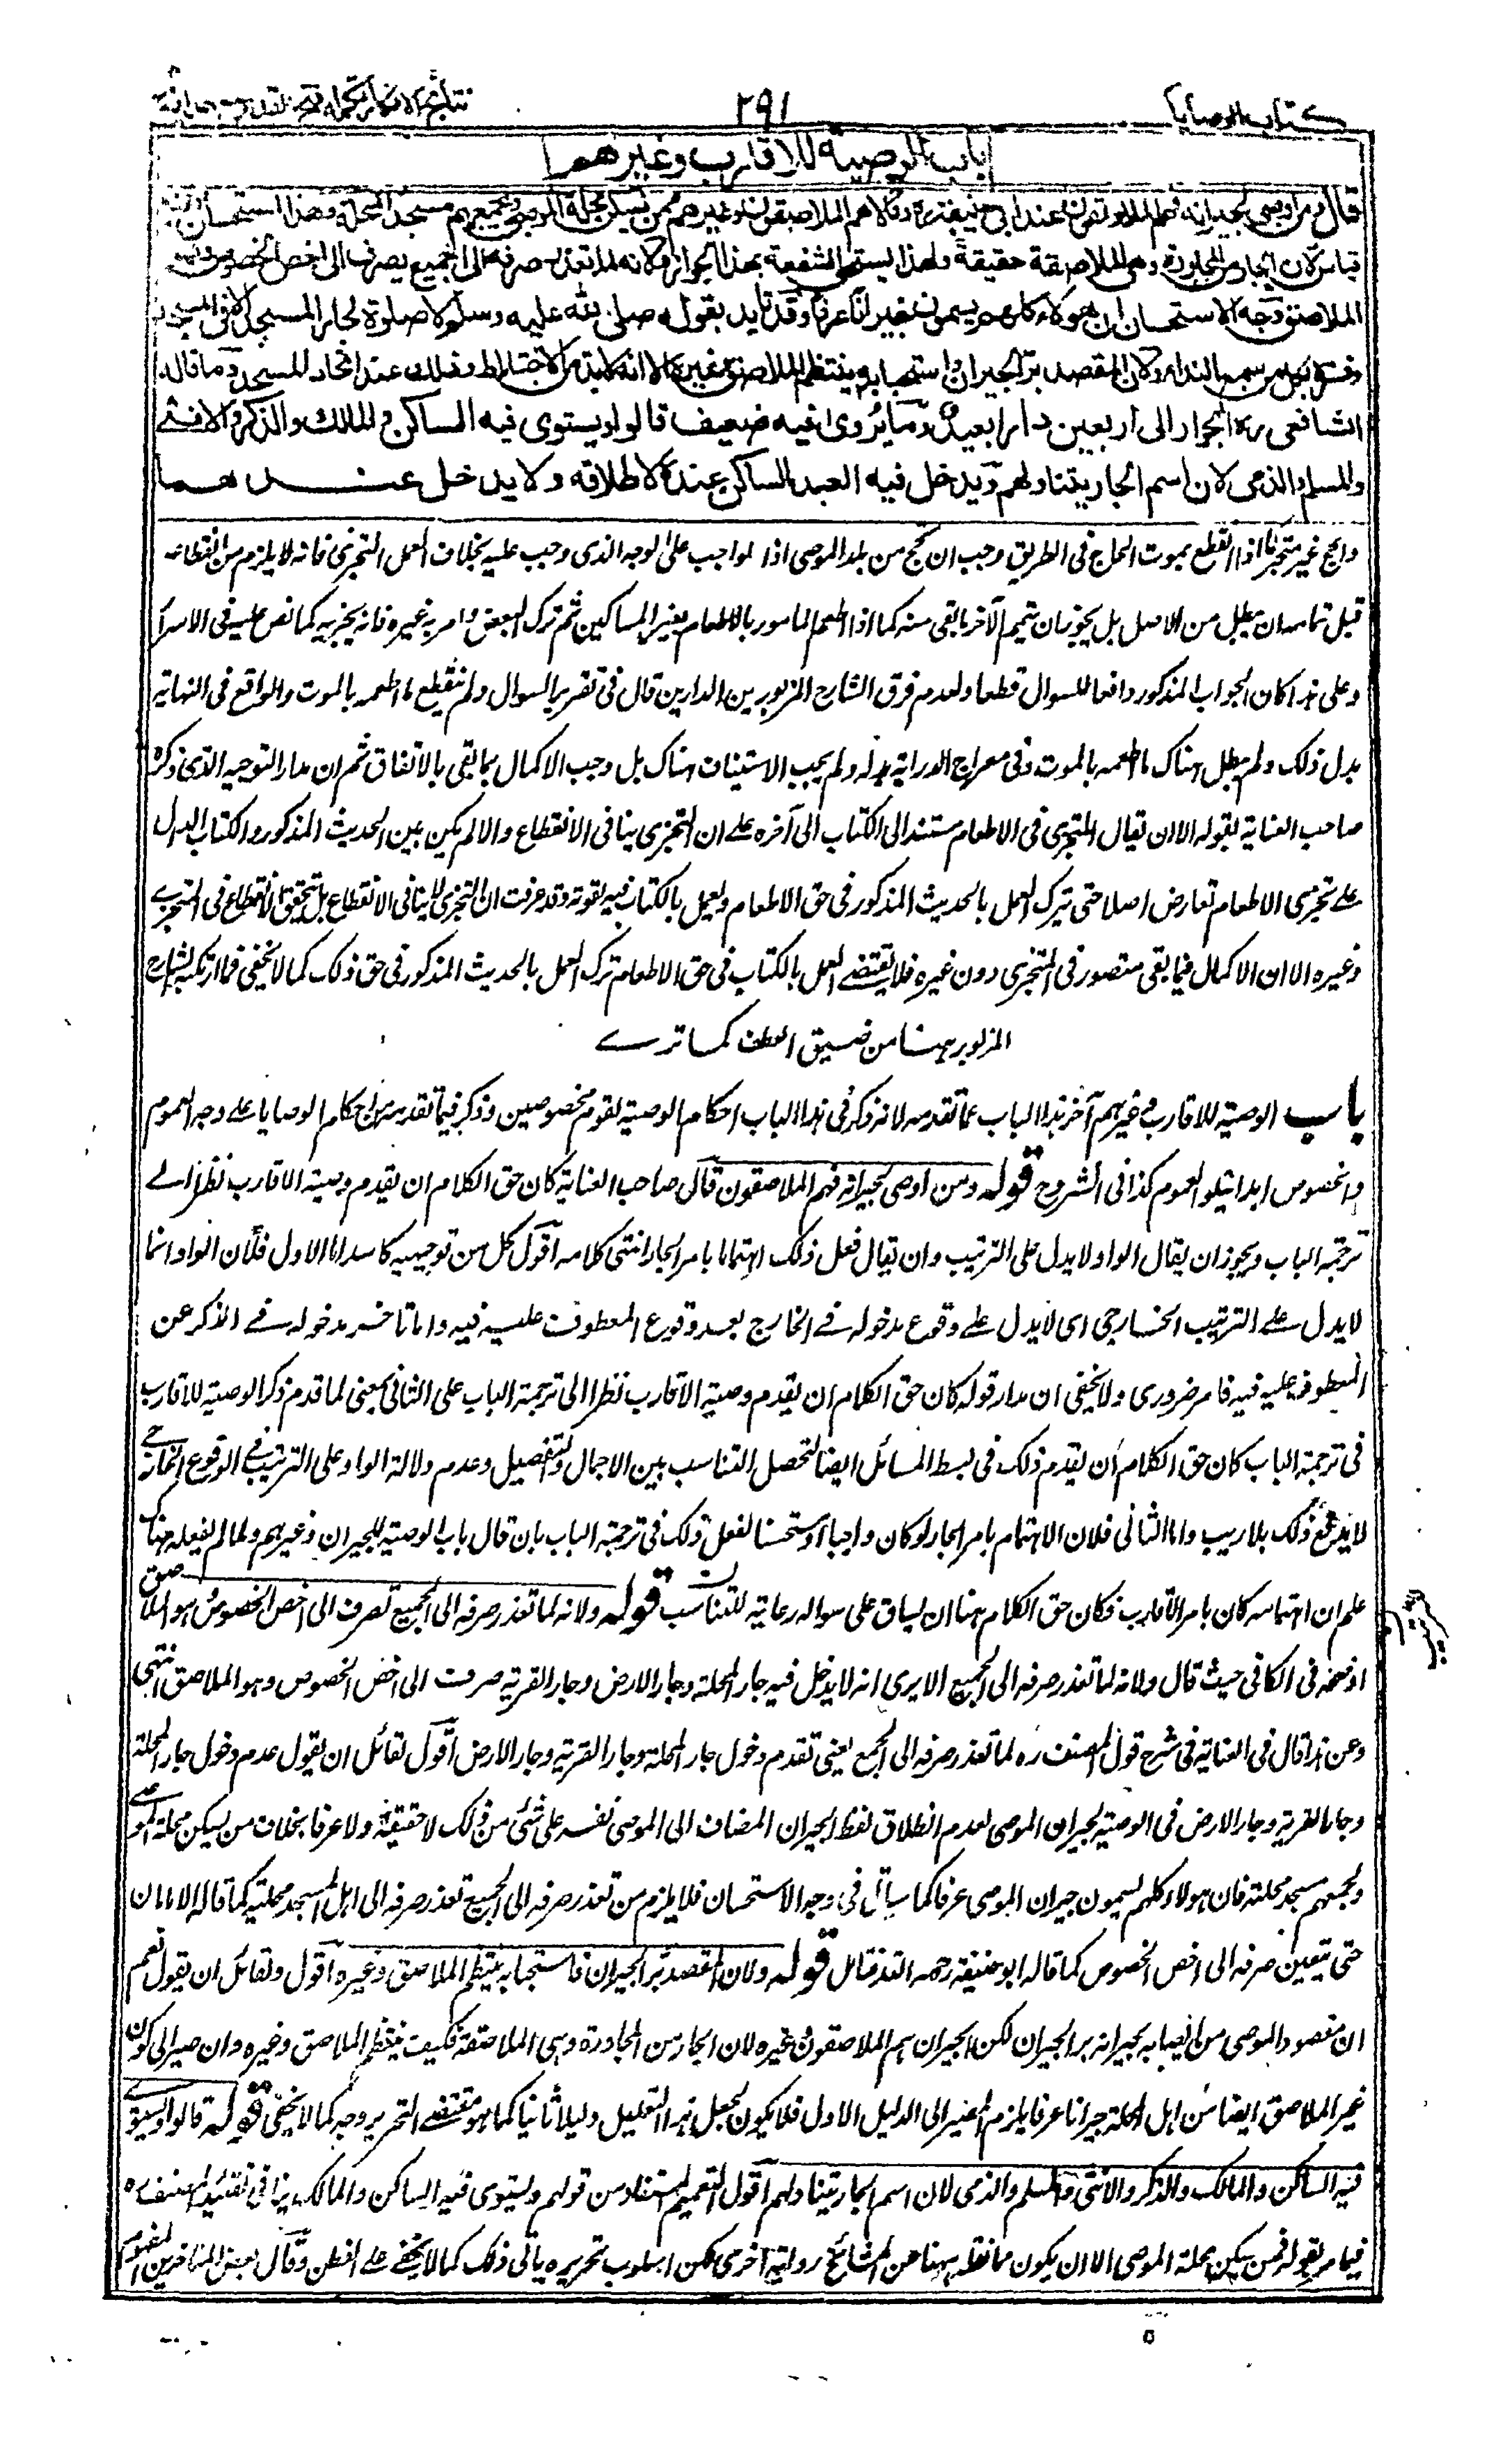 كتاب الوصايا
٢٩١
نتائج الافكار تكملة فتح القدير
باب الوصية للاقارب وغيرهم
قال ومن اوصى لجيرانه فهم الملاصقون عند ابي حنيفة ره وقالا هم الملاصقون وغيرهم ممن يسكن محلة الموصي ويجمعهم مسجد المحلة وهذا استحسان وقوله
قياس لان الجار من المجاورة وهي الملاصقة حقيقة ولهذا يستحق الشفعة بهذا الجوار ولانه لما تعذر صرفه الى الجميع يصرف الى اخص الخصوص وهو
الملاصق وجه الاستحسان ان هؤلاء كلهم يسمون جيرانا عرفا وقد تايد بقوله صلى الله عليه وسلم لا صلوة لجار المسجد الا في المسجد
وفسره بكل من سمع النداء ولان المقصد بر الجيران واستحبابه ينتظم الملاصق وغيره الا انه لا بد من الاختلاط وذلك عند اتحاد المسجد وما قاله
الشافعي ره الجوار الى اربعين دارا بعيد وما يروى فيه ضعيف قالوا ويستوي فيه الساكن والمالك والذكر والانثى
والمسلم والذمي لان اسم الجار يتناولهم ويدخل فيه العبد الساكن عنده لاطلاقه ولا يدخل عندهما
والحج غير متجز فاذا انقطع بموت الحاج في الطريق وجب ان يحج من بلد الموصى اذا لواجب على الوجه الذى وجب عليه بخلاف العمل المتجزى فانه لا يلزم من انقطاعه
قبل تمامه ان يبطل من الاصل بل يجوز ان يتمم الآخر ما بقى منه كما اذا اطعم المامور بالاطعام بعض المساكين ثم ترك البعض وامر به غيره فانه يجزيه كما نص عليه فى الاسرار
وعلى هذا كان الجواب المذكور دافعا للسوال قطعا ولعدم فرق الشارح المزبور بين الدارين قال فى تقرير السوال ولم ينقطع ما اطعمه بالموت والواقع فى النهاية
بدل ذلك ولم يبطل هناك ما اطعمه بالموت وفى معراج الدراية بدله ولم يجب الاستيناف هناك بل وجب الاكمال بما بقى بالاتفاق ثم ان مدار التوجيه الذى ذكره
صاحب العناية بقوله الا ان يقال المتجزى فى الاطعام مستند الى الكتاب الى آخره على ان التجزى ينافى الانقطاع والا لم يكن بين الحديث المذكور والكتاب الدال
على تجزى الاطعام تعارض اصلا حتى يترك العمل بالحديث المذكور فى حق الاطعام ويعمل بالكتاب فيه لقوته وقد عرفت ان التجزى لا ينافى الانقطاع بل يتحقق الانقطاع فى المتجزى
وغيره الا ان الاكمال فيما بقى متصور فى المتجزى دون غيره فلا يقتضى العمل بالكتاب فى حق الاطعام ترك العمل بالحديث المذكور فى حق ذلك كما لا يخفى فما ارتكبه الشارح
المزبور ههنا من ضيق العطن كما ترى
باب الوصية للاقارب وغيرهم آخر هذا الباب عما تقدمه لانه ذكر فى هذا الباب احكام الوصية لقوم مخصوصين وذكر فيما تقدمه من احكام الوصايا على وجه العموم
والخصوص ابدا يتلو العموم كذا فى الشروح قوله ومن اوصى لجيرانه فهم الملاصقون قال صاحب العناية كان حق الكلام ان يقدم وصية الاقارب نظرا الى
ترجمة الباب ويجوز ان يقال الواو لا يدل على الترتيب وان يقال فعل ذلك اهتماما بامر الجار انتهى كلامه اقول كل من توجيهيه كاسد اما الاول فلان الواو انما
لا يدل على الترتيب الخارجى اى لا يدل على وقوع مدخوله فى الخارج بعد وقوع المعطوف عليه فيه واما تاخر مدخوله فى الذكر عن
المعطوف عليه فيه فامر ضرورى ولا يخفى ان مدار قوله كان حق الكلام ان يقدم وصية الاقارب نظرا الى ترجمة الباب على الثانى يعنى لما قدم ذكر الوصية للاقارب
فى ترجمة الباب كان حق الكلام ان يقدم ذلك فى بسط المسائل ايضا لتحصل التناسب بين الاجمال والتفصيل وعدم دلالة الواو على الترتيب فى الوقوع الخارجى
لا يدفع ذلك بلا ريب واما الثانى فلان الاهتمام بامر الجار لو كان واجبا او مستحسنا لفعل ذلك فى ترجمة الباب بان قال باب الوصية للجيران وغيرهم ولما لم يفعله هناك
علم ان اهتمامه كان بامر الاقارب فكان حق الكلام هنا ان يساق على سواله رعاية للتناسب قوله ولانه لما تعذر صرفه الى الجميع تصرف الى اخص الخصوص وهو الملاصق
اوضحه فى الكافى حيث قال ولانه لما تعذر صرفه الى الجميع الا يرى انه لا يدخل فيه جار المحلة وجار الارض وجار القرية صرفت الى اخص الخصوص وهو الملاصق انتهى
وعن هذا قال فى العناية فى شرح قول المصنف ره لما تعذر صرفه الى الجمع يعنى تقدم دخول جار المحلة وجار القرية وجار الارض اقول لقائل ان يقول عدم دخول جار المحلة
وجار القرية وجار الارض فى الوصية لجيران الموصى لعدم انطلاق لفظ الجيران المضاف الى الموصى نفسه على شئ من ذلك لا حقيقة ولا عرفا بخلاف من يسكن محلة الموصى
ويجمعهم مسجد محلته فان هولاء كلهم يسمون جيران الموصى عرفا كما سياتى فى وجه الاستحسان فلا يلزم من تعذر صرفه الى الجميع تعذر صرفه الى اهل المسجد محلته كما قاله الامامان
حتى يتعين صرفه الى اخص الخصوص كما قاله ابو حنيفة رحمه الله فتامل قوله ولان المقصد بر الجيران فاستحبابه ينتظم الملاصق وغيره اقول ولقائل ان يقول نعم
ان مقصود الموصى من ايصابه لجيرانه بر الجيران لكن الجيران هم الملاصقون غيره لان الجار من المجاورة وهى الملاصقة فكيف ينتظم الملاصق وغيره وان صير الى كون
غير الملاصق ايضا من اهل المحلة جيرانا عرفا يلزم المصير الى الدليل الاول فلا يكون لجعل هذا التعليل دليلا ثانيا كما هو مقتضى التحرير وجه كما لا يخفى قوله قالوا ويستوى
فيه الساكن والمالك والذكر والانثى والمسلم والذمى لان اسم الجار يتناولهم اقول التعميم المستفاد من قولهم ويستوى فيه الساكن والمالك ينافى تقييد المصنف ره
فيما مر بقوله ممن يسكن محلة الموصى الا ان يكون ما نقله ههنا عن المشائخ رواية اخرى لكن اسلوب تحريره يابى ذلك كما لا يخفى على الفطن وقال بعض المتاخرين